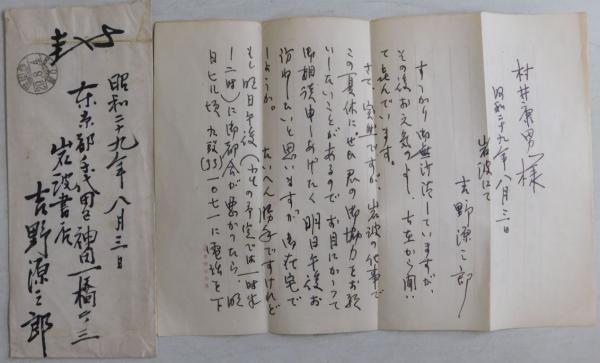 村井康男様
昭和二十九年八月三日
岩波にて
吉野源三郎
すっかり御無沙汰していますが、
その後お元気のよし、古在から聞い
て喜んでいます。
さて、突然ですが、岩波の仕事で
この夏休にぜひ君の御協力をお願
いしたいことがあるので、お目にかかって
御相談申しあげたく、明日午後お
訪ねしたいと思いますが、御在宅で
しょうか。たいへん勝手ですけれど
もし明日午後(小生の予定では一時半
―二時)に御都合が悪かったら、明
日ヒル頃、九段(33)一〇七一に電話を下
昭和二十九年八月三日
東京都千代田区神田一橋二ノ三
岩波書店
吉野源三郎